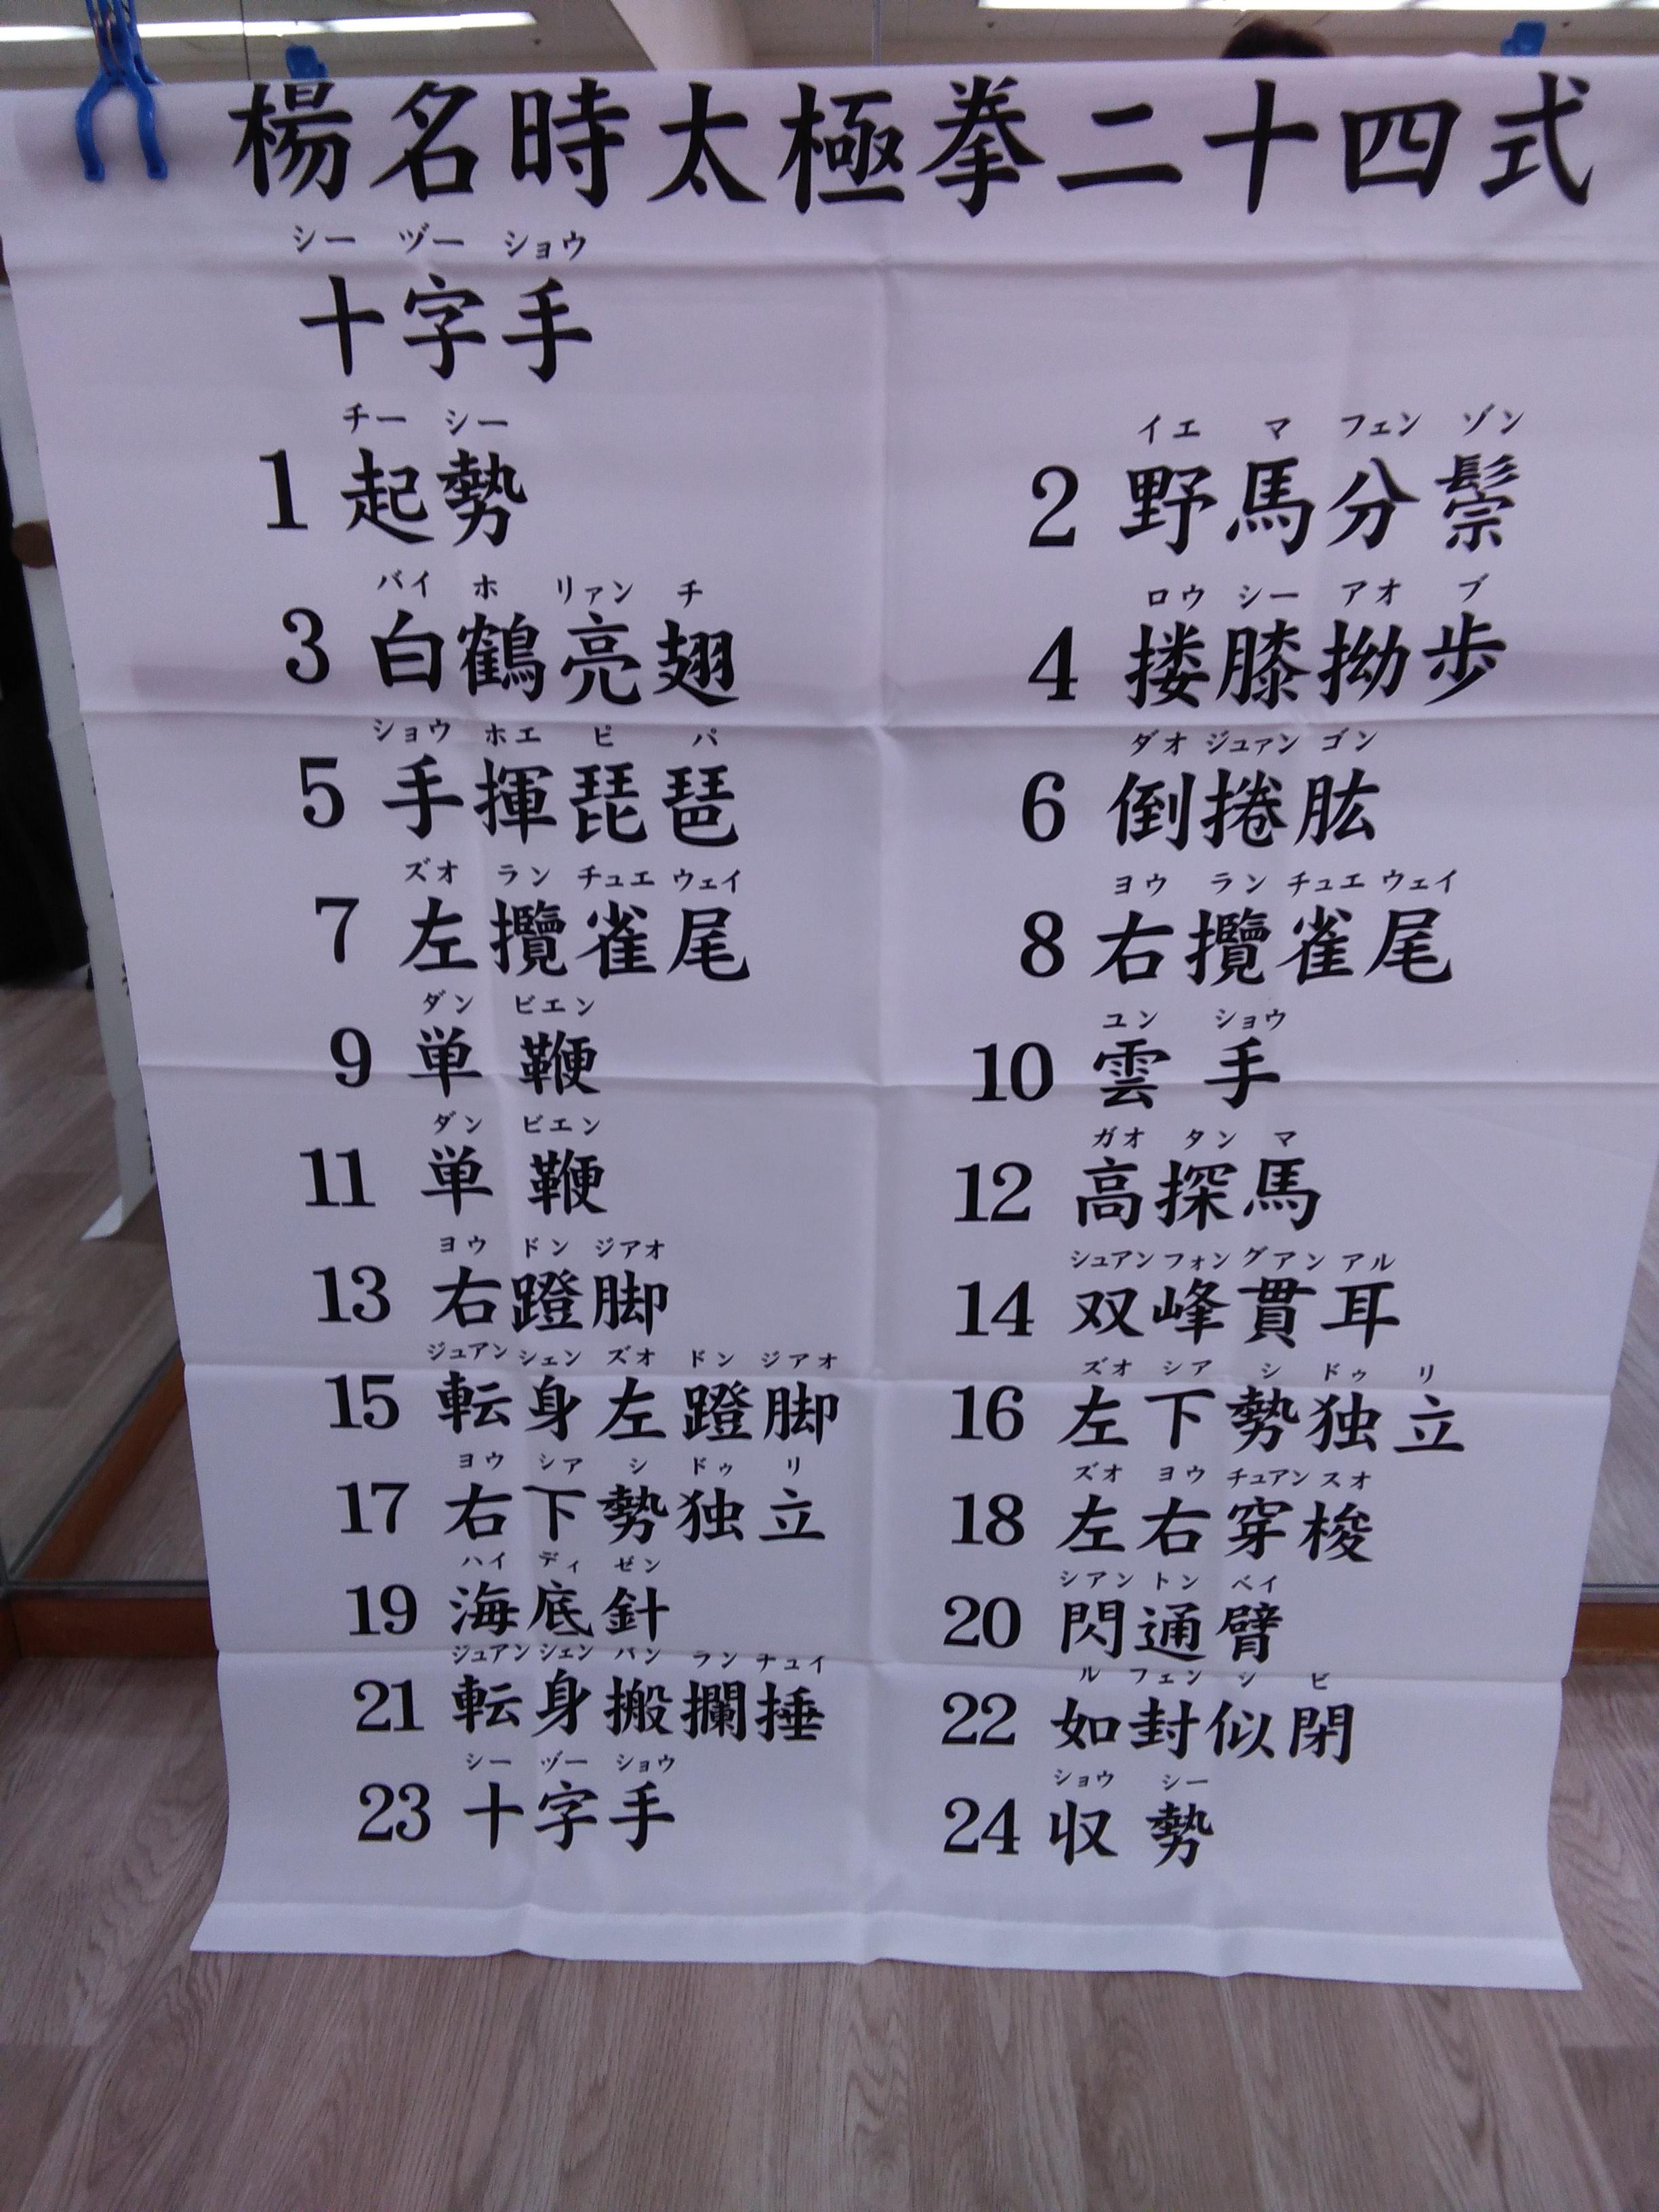 楊名時太極拳二十四式
シー ヅー ショウ
十字手
チー シー
1 起勢
イエ マ フェン ゾン
2 野馬分鬃
バイ ホ リァン チ
3 白鶴亮翅
ロウ シー アオ ブ
4 搂膝拗歩
ショウ ホエ ピ パ
5 手揮琵琶
ダオ ジュァン ゴン
6 倒捲肱
ズオ ラン チュエ ウェイ
7 左攬雀尾
ヨウ ラン チュエ ウェイ
8 右攬雀尾
ダン ビエン
9 単鞭
ユン ショウ
10 雲手
ダン ビエン
11 単鞭
ガオ タン マ
12 高探馬
ヨウ ドン ジアオ
13 右蹬脚
シュアン フォン グアン アル
14 双峰貫耳
ジュアン シェン ズオ ドン ジアオ
15 転身左蹬脚
ズオ シア シ ドゥ リ
16 左下勢独立
ヨウ シア シ ドゥ リ
17 右下勢独立
ズオ ヨウ チュアン スオ
18 左右穿梭
ハイ ディ ゼン
19 海底針
シアン トン ベイ
20 閃通臂
ジュアン シェン バン ラン チュイ
21 転身搬攔捶
ル フェン シ ビ
22 如封似閉
シー ヅー ショウ
23 十字手
ショウ シー
24 収勢